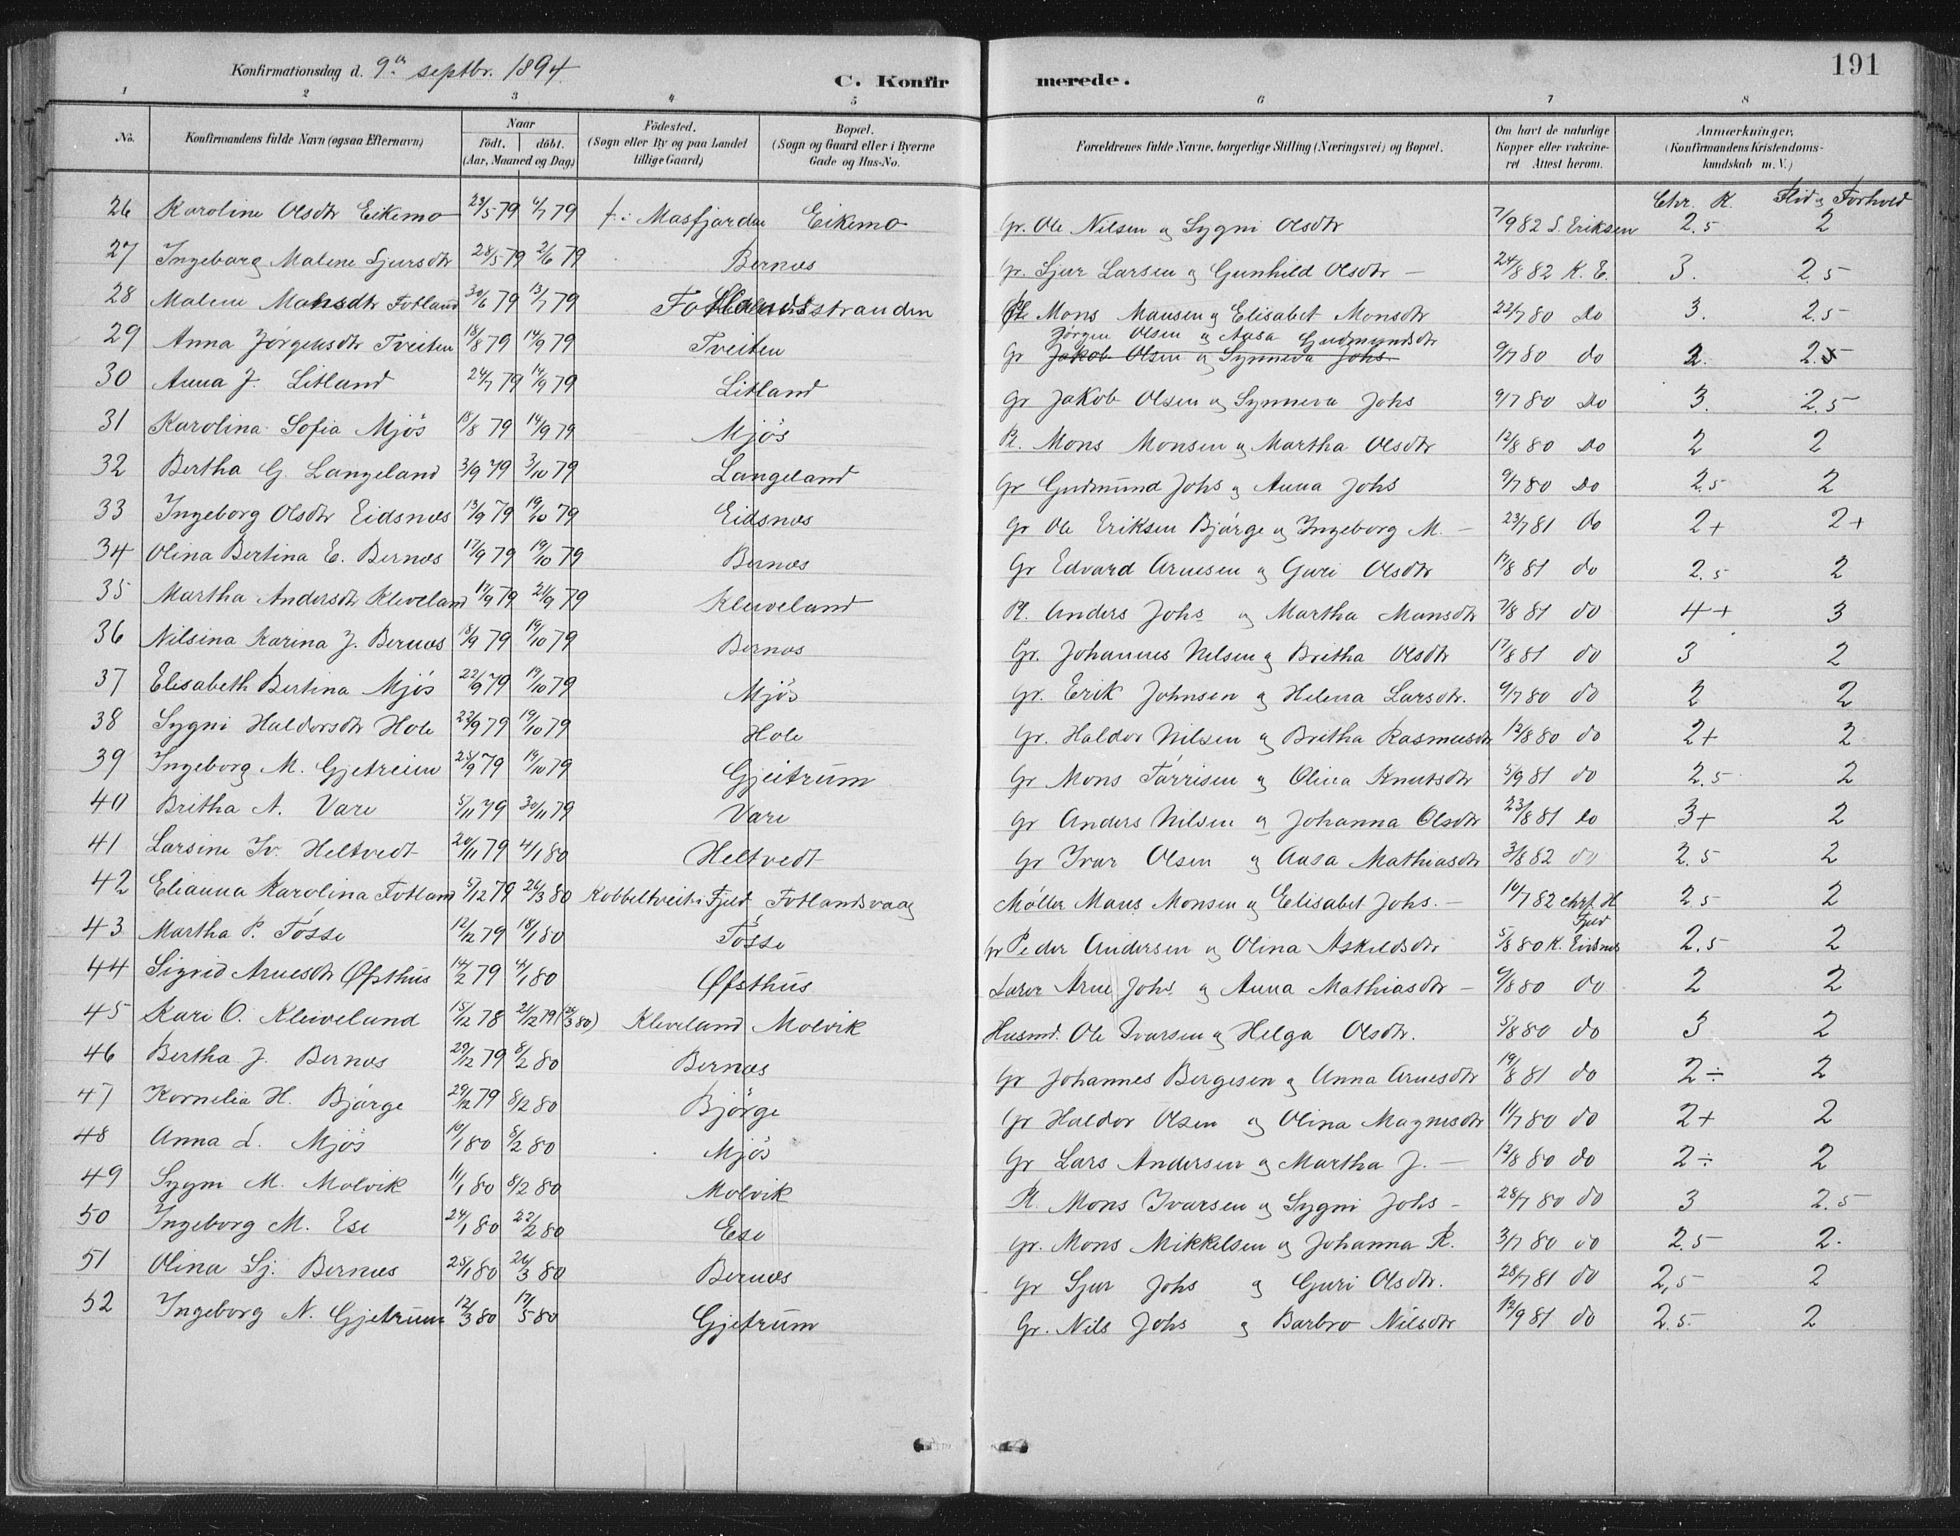 Konfirmationsdag d. 9de septbr. 1894.
C. Konfirmerede.
191
1 2 3 4 5 6 7 8
No.
Konfirmandens fulde Navn (ogsaa Efternavn)
Naar
født. døbt.
(Aar, Maaned og Dag)
Fødested.
(Sogn eller By og paa Landet
tillige Gaard)
Bopæl.
(Sogn og Gaard eller i Byerne
Gade og Hus-No.
Forældrenes fulde Navne, borgerlige Stilling (Næringsvei) og Bopæl.
Om havt de naturlige
Kopper eller vakcine-
ret Attest herom.
Anmærkninger,
(Konfirmandens Kristendoms-
kundskab m. V.)
Chr. K. Flid og Forhold
26 Karoline Olsdtr Eikemo 23/5 79 4/7 79 f. i Masfjorden Eikemo Gr. Ole Nilsen og Sygni Olsdtr 7/9 82 S. Eriksen 2.5 2
27 Ingeborg Malene Sjursdtr 28/5 79 2/6 79 Bernæs Gr. Sjur Larsen og Gunhild Olsdtr — 24/8 82 K. E. 3. 2.5
28 Malene Monsdtr Fotland 30/6 79 13/7 79 Fotlandsstranden Mons Mansen og Elisabet Monsdtr 22/7 80 Do 3. 2.5
Jørgen Olsen og Aasa Gudmundsdtr
29 Anna Jørgensdtr Tveiten 18/8 79 14/9 79 Tveiten Gr Jakob Olsen og Synneva Johs 9/7 80 do 2. 2.5
30 Anna J. Litland 24/7 79 14/9 79 Litland Gr Jakob Olsen og Synneva Johs 9/7 80 Do 3. 2.5
31 Karolina Sofia Mjøs 18/8 79 14/9 79 Mjøs Pl. Mons Monsen og Martha Olsdtr 12/8 80 Do 2 2
32 Bertha G. Langeland 3/9 79 3/10 79 Langeland Gr Gudmund Johs og Anna Johs 9/7 80 Do 2.5 2
33 Ingeborg Olsdtr Eidsnæs 13/9 79 19/10 79 Eidsnæs Gr Ole Eriksen Bjørge og Ingeborg M. — 23/7 81 do 2+ 2+
34 Olina Bertina E. Bernæs 17/9 79 19/10 79 Bernæs Gr Edvard Arnesen og Guri Olsdtr 17/8 81 do 2.5 2
35 Martha Andersdtr Kleveland 17/9 79 21/9 79 Kleiveland Pl. Anders Johs og Martha Monsdtr 7/8 81 do 4+ 3
36 Nilsina Karina J. Bernæs 18/9 79 19/10 79 Bernæs Gr. Johannes Nilsen og Britha Olsdtr 17/8 81 do 3 2
37 Elisabeth Bertina Mjøs 22/9 79 19/10 79 Mjøs Gr. Erik Johnsen og Helena Larsdtr. 9/7 80 do 2 2
38 Sygni Haldorsdtr Hole 22/9 79 19/10 79 Hole Gr. Haldor Nilsen og Britha Rasmusdtr 12/8 80 do 2+ 2
39 Ingeborg M. Gjetreim 25/9 79 19/10 79 Gjeitrum Gr Mons Tørrisen og Olina Knutsdtr 5/9 81 do 2.5 2
40 Britha A. Vare 5/11 79 30/11 79 Vare Gr Anders Nilsen og Johanna Olsdtr 23/8 81 do 3+ 2
41 Larsine Iv. Heltvedt 20/11 79 4/1 80 Heltvedt Gr Ivar Olsen og Aasa Mathiasdtr 3/8 82 do 2.5 2
42 Elianna Karolina Fotland 5/12 79 26/3 80 Kobbeltveit i Fjeld Fotlandsvaag Møller Mans Monsen og Elisabet Johs. — 14/7 82 Chrf. H Fjeld 2.5 2
43 Martha P. Tøsse 12/12 79 18/1 80 Tøsse Gr Peder Andersen og Olina Askildsdtr 5/8 80 K. Eidsnes 2.5 2
44 Sigrid Arnesdtr Øfsthus 14/2 79 4/1 80 Øfsthus Lærer Arne Johs og Anna Mathiasdtr — 9/8 80 do 2 2
45 Kari O. Kleiveland 15/12 78 21/12 79 (26/3 80) Kleveland Molvik Husmd. Ole Ivarsen og Helga Olsdtr. 5/8 80 do 3 2
46 Bertha J. Bernæs 29/12 79 8/2 80 Bernæs Gr Johannes Bergesen og Anna Arnesdtr 19/8 81 do 2÷ 2
47 Kornelia H. Bjørge 29/12 79 8/2 80 Bjørge Gr Haldor Olsen og Olina Magnesdtr 11/7 80 do 2+ 2
48 Anna L. Mjøs 10/1 80 8/2 80 Mjøs Gr Lars Andersen og Martha J. — 12/8 80 do 2÷ 2
49 Sygni M. Molvik 11/1 80 8/2 80 Molvik Pl. Mons Ivarsen og Sygni Johs - 28/7 80 do 3 2.5
50 Ingeborg M. Ese 24/1 80 22/2 80 Ese Gr. Mons Mikkelsen og Johanna R. 3/7 80 do 2.5 2.
51 Olina Sj. Bernæs 25/1 80 26/3 80 Bernæs Gr Sjur Johs og Guri Olsdtr. 28/7 81 do 2,5 2
52 Ingeborg N. Gjetrum 12/3 80 17/5 80 Gjetrum Gr. Nils Johs og Barbro Nilsdtr 12/9 81 do 2.5 2